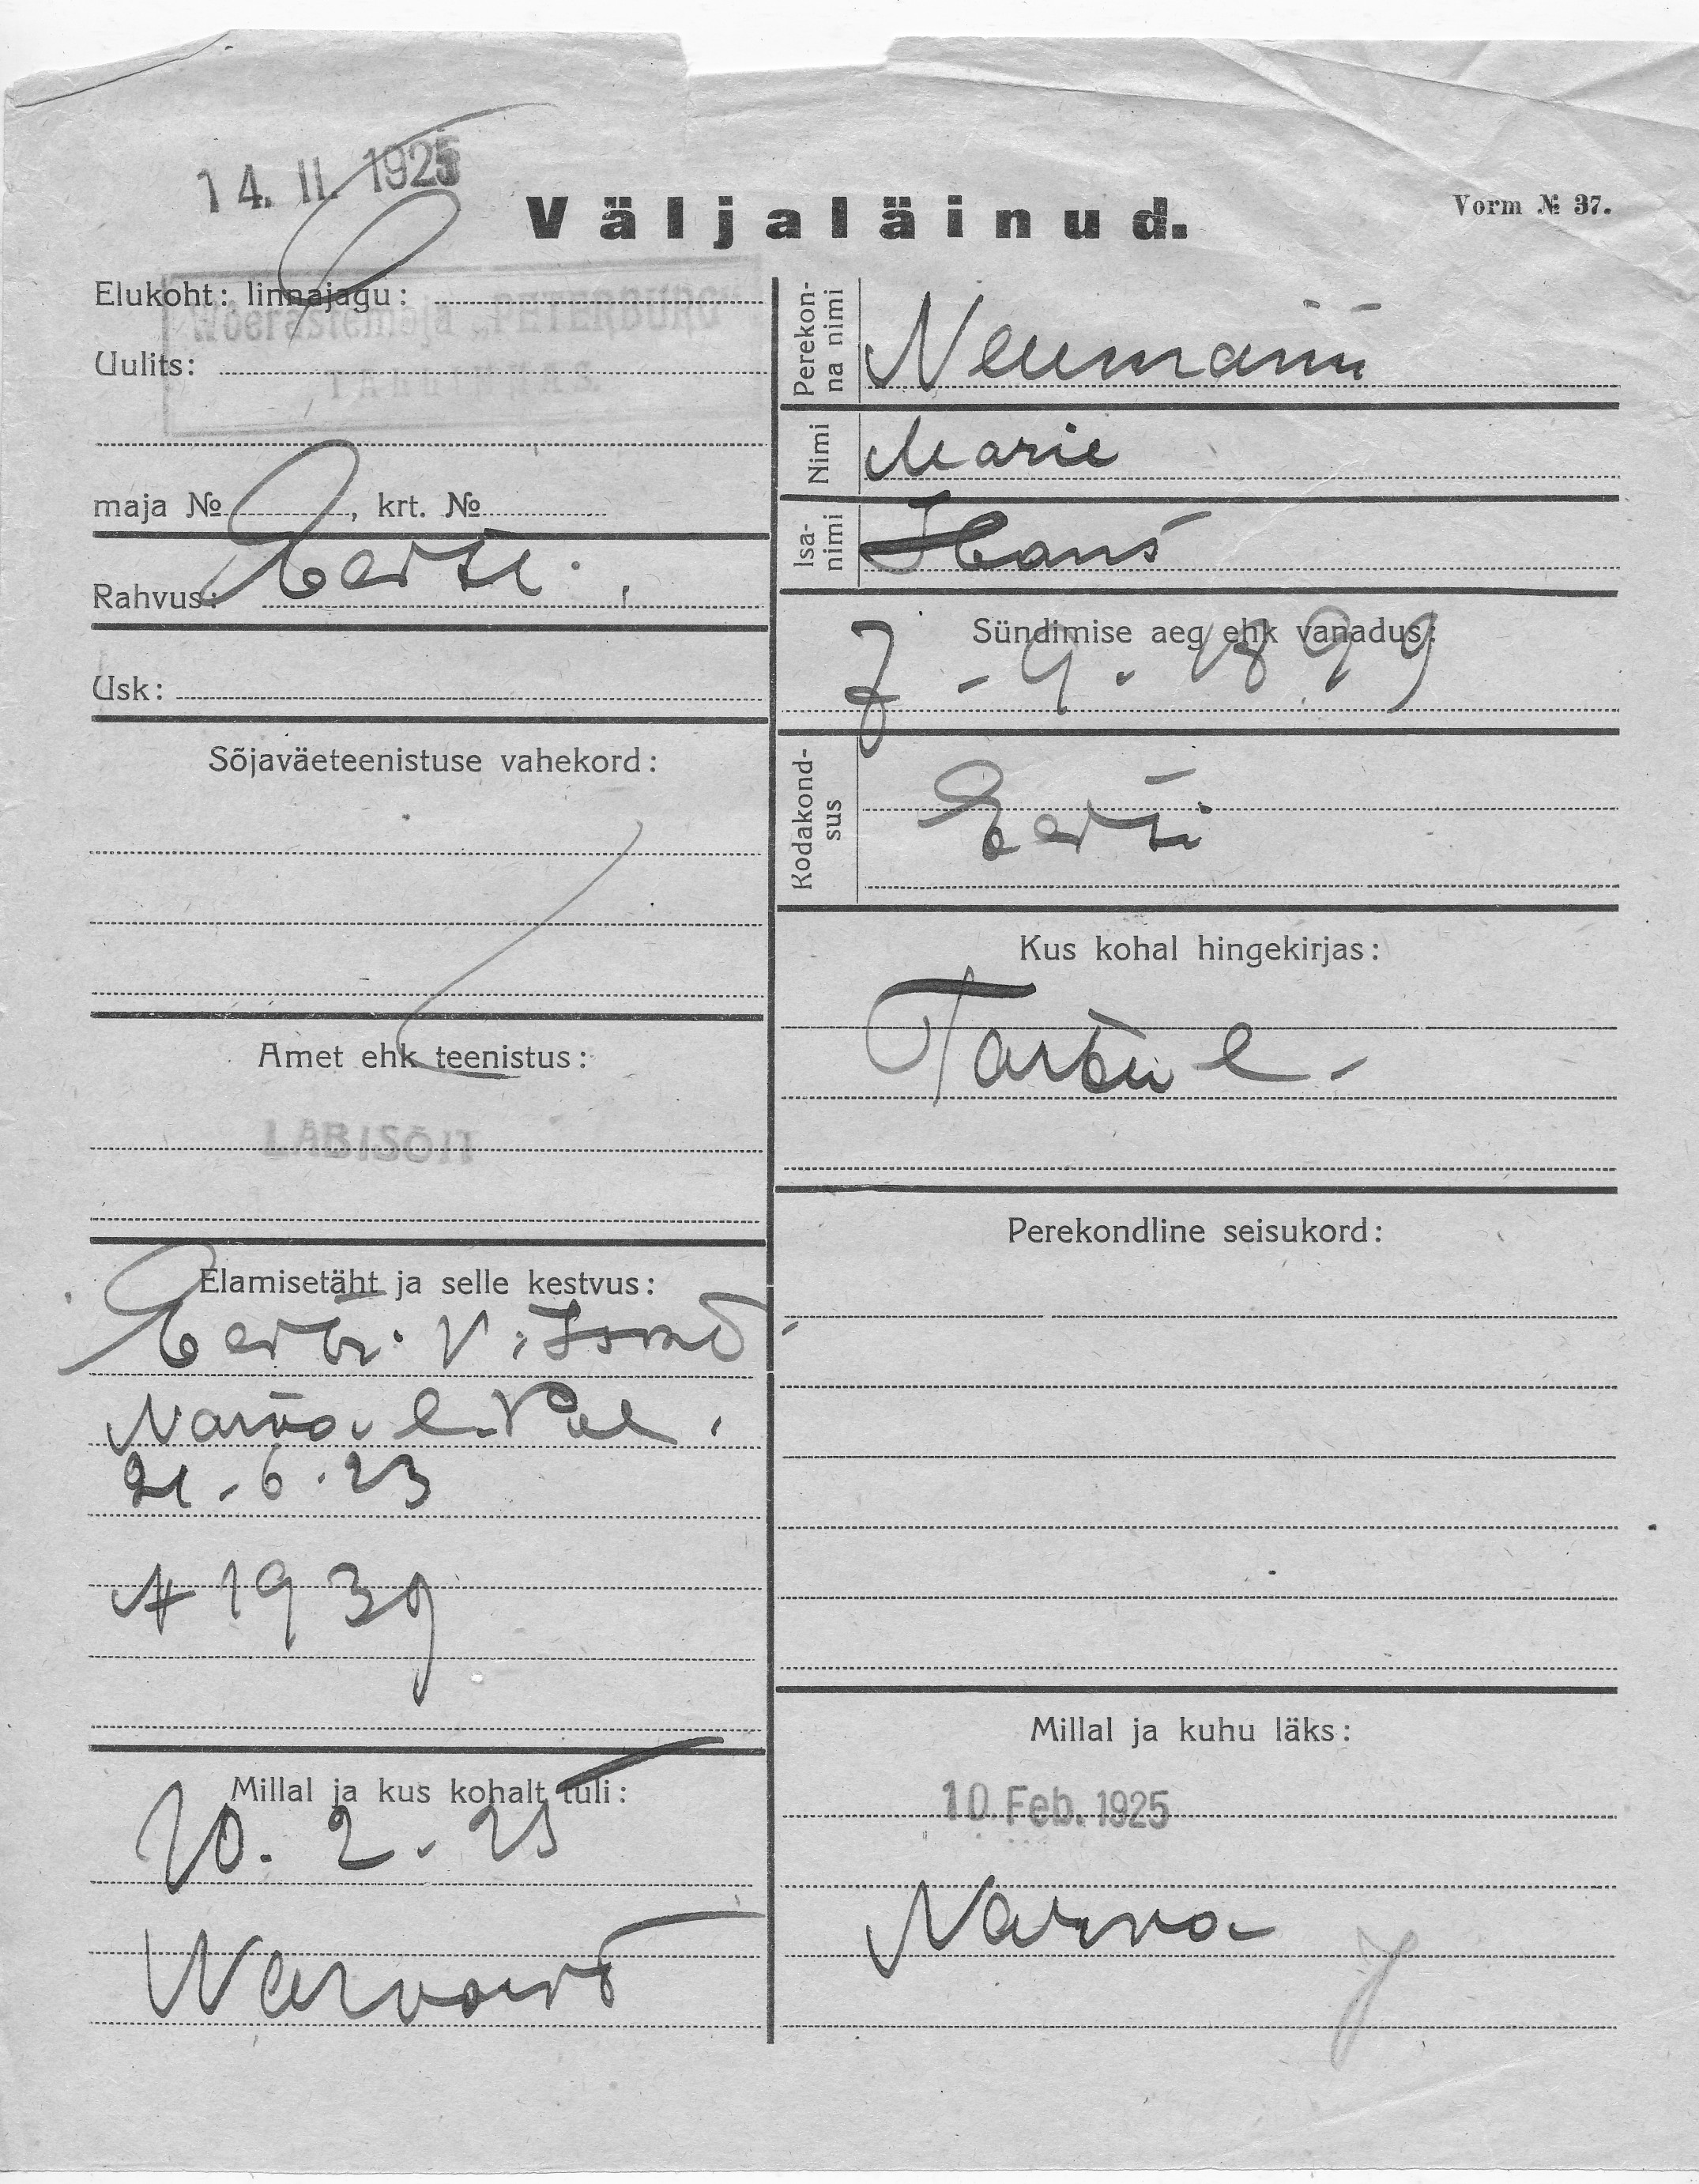 14. II. 1925
Väljaläinud.
Vorm № 37.
Elukoht: linnajagu:
Võerastemaja „PETERBURG"
Uulits:
TALLINNAS.
maja № , krt. №
Rahvus: Eesti.
Usk:
Sõjaväeteenistuse vahekord:
Amet ehk teenistus:
LÄBISÕIT
Elamisetäht ja selle kestvus:
Eesti.
Narva l. Pol.
21-6.23
№ 1939
Millal ja kus kohalt tuli:
10. 2. 25
Narvast
Perekon-
na nimi
Neumann
Nimi
Marie
Isa-
nimi
Hans
Sündimise aeg ehk vanadus:
7-9.1899
Kodakond-
sus
Eesti
Kus kohal hingekirjas:
Tartu l.
Perekondline seisukord:
Millal ja kuhu läks:
10 Feb. 1925
Narva